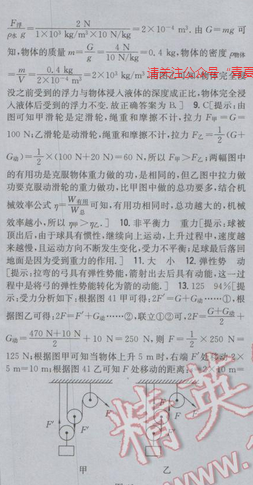 F浮/ρ水g = 2 N/(1×10³ kg/m³×10 N/kg) =2×10⁻⁴ m³. 由 G=mg 可
知,物体的质量 m=G/g=4 N/(10 N/kg)=0.4 kg,物体的密度 ρ物体
=m/V=0.4 kg/(2×10⁻⁴ m³)=2×10³ kg/m³
没之前受到的浮力与物体浸入液体的深度成正比,物体完全浸
入液体后受到的浮力不变.故正确答案为 B.] 9. C[提示:由
图可知甲滑轮是定滑轮,绳重和摩擦不计,拉力 F甲=G=
100 N;乙滑轮是动滑轮,绳重和摩擦不计,拉力 F乙=1/2(G+
G动)=1/2×(100 N+20 N)=60 N,所以 F甲>F乙;两幅图中
的有用功是克服物体重力做的功,是相同的,但乙图中拉力做
功要克服动滑轮的重力做功,比甲图中做的总功要多,结合机
械效率公式 η=W有用/W总 可知,有用功相同时,总功越大的,机械
效率越小,所以 η甲>η乙.] 10. 非平衡力 重力[提示:球被
顶出后,由于球具有惯性,继续向上运动,上升过程中,速度越
来越慢,且运动方向不断发生变化,受力不平衡;足球最后落回
地面是因为受到重力的作用.] 11. 大 小 12. 弹性势 动
[提示:拉弯的弓具有弹性势能,箭射出去后具有动能,这一过
程中是将弓的弹性势能转化为箭的动能.] 13. 125 94%[提
示:受力分析如下:根据图 41 甲可得:2F′=G+G动……①,根
据图乙可得:2F=F′+G动……②,联立①②可,2F=(G+G动)/2+
G动=(470 N+10 N)/2+10 N=250 N,则 F=1/2×250 N=
125 N;根据图甲可知当物体上升 5 m 时,右端 F′处移动 2×
5 m=10 m;根据图 41 乙可知 F 处移动的距离
F′
F′
F
甲
乙
精英